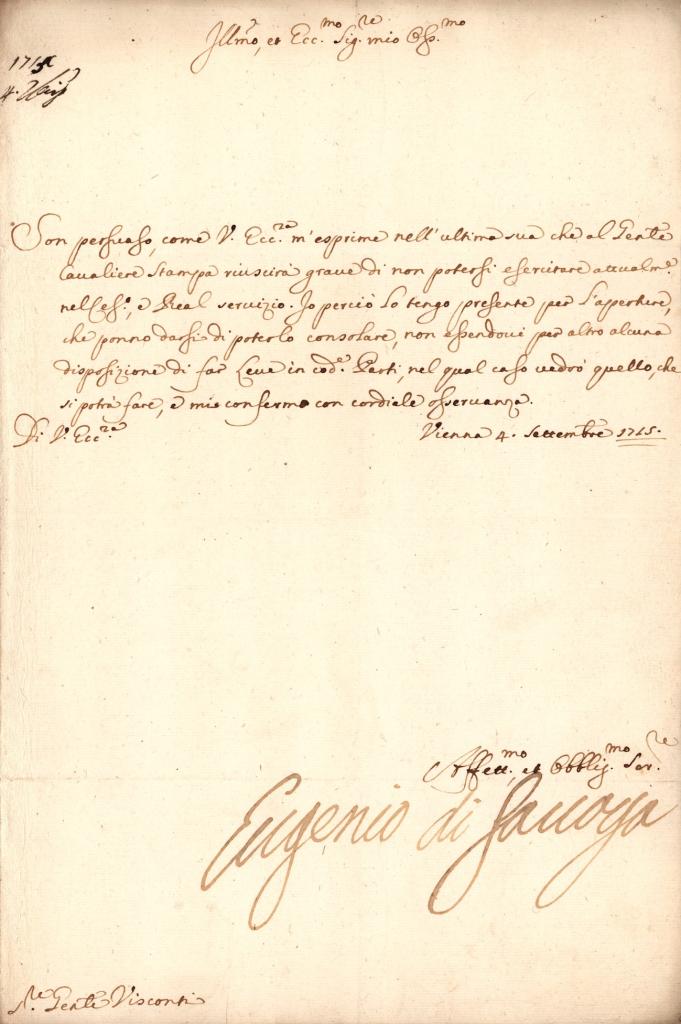 Illmo, et Ecc.mo Sig.re mio Oss.mo
1715
4. 7bre
Son persuaso, come V. Ecc.za m'esprime nell'ultima sua che al Gente
Cavaliere Stampa riuscirà grave di non potersi esercitare attualm.e
nel Ces.o, e Real servizio. Io perciò lo tengo presente per l'aperture,
che ponno darsi di poterlo consolare, non essendovi per altro alcuna
disposizione di far Leve in cod.e Parti, nel qual caso vedrò quello, che
si potrà fare, e mi confermo con cordiale osservanza.
Di V. Ecc.za
Vienna 4. Settembre 1715.
Affett.mo, et Obblig.mo Ser.re
Eugenio di Savoya
S.re Gente Visconti